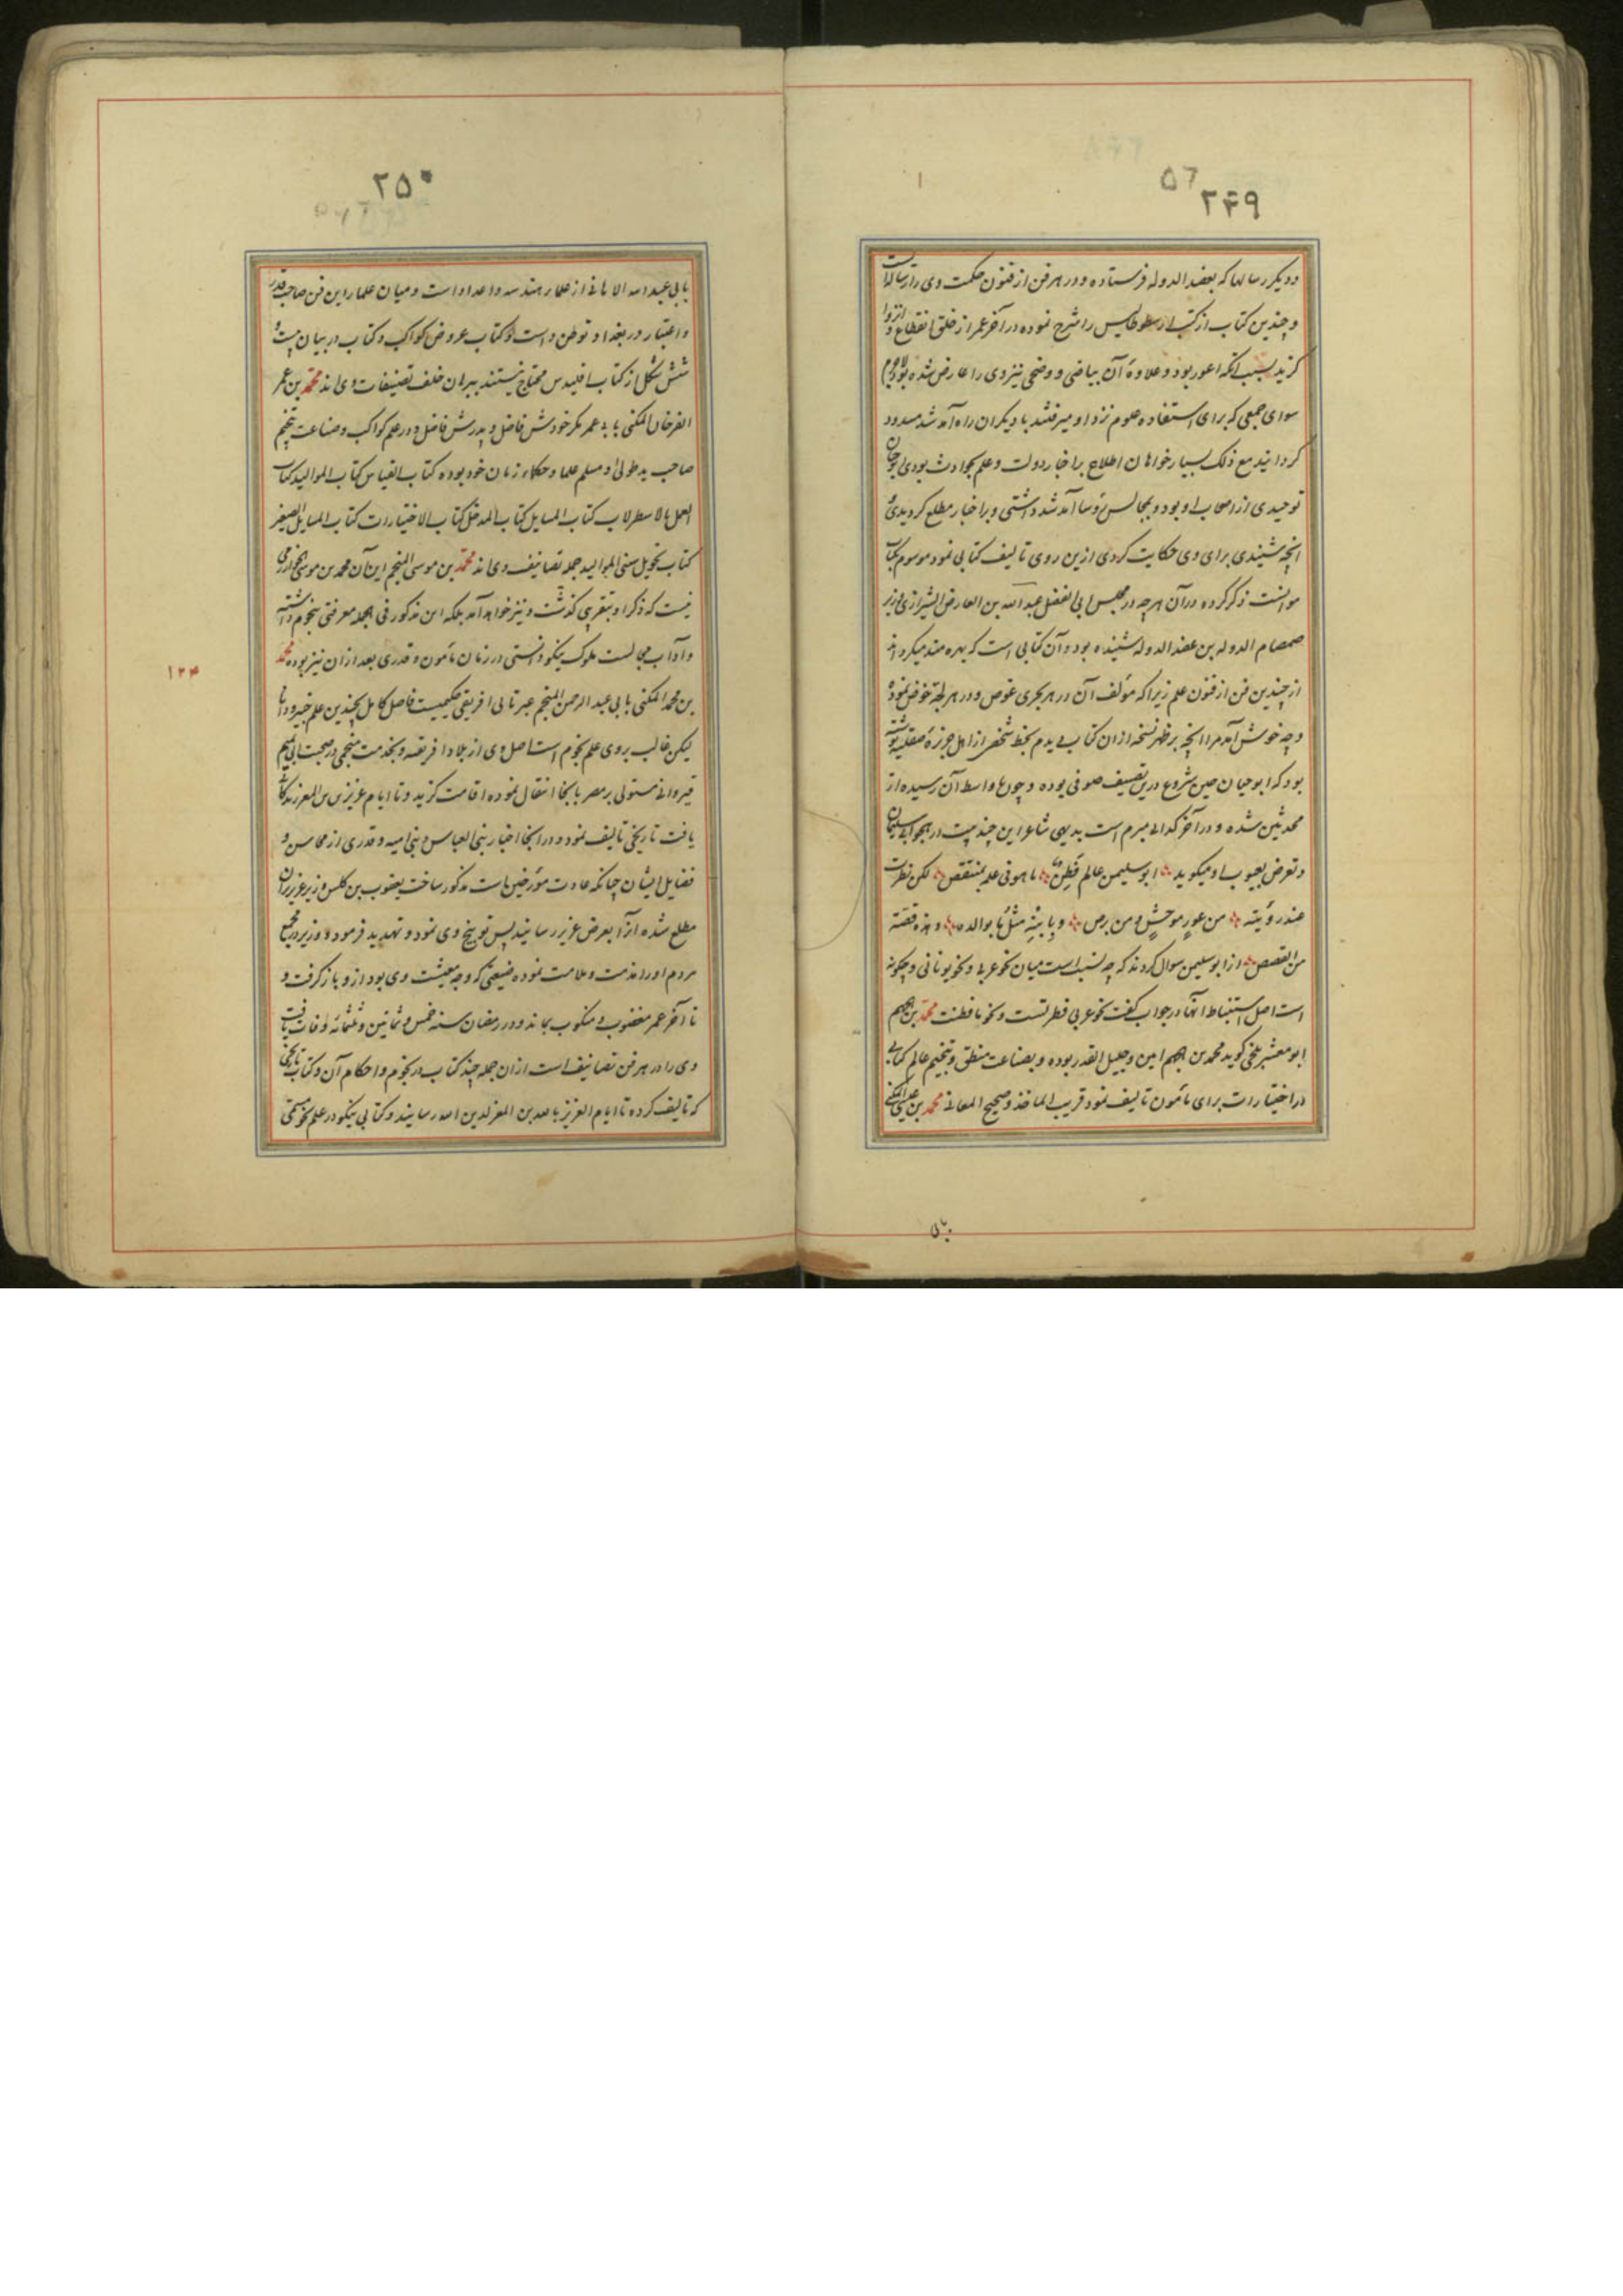 57
۲۴۹
ودیکر رسالها که بعضد الدوله فرستاده و در هر فن از فنون حکمت وی را رسالهاست
و چندین کتاب از کتب ارسطوطالیس را شرح نموده در آخر عمر از خلق انقطاع و انزوا
کزید بسبب آنکه اعور بود و علاوهٔ آن بیاضی و وضحی نیز وی را عارض شده بود لاجرم
سوای جمعی که برای استفاده علوم نزد او میرفتند با دیکران راه آمد شد مسدود
کردانید مع ذلک بسیار خواهان اطلاع بر اخبار دولت و علم بحوادث بودی ابو حیان
توحیدی از اصحاب او بود و بمجالس رؤسا آمد شد داشتی و بر اخبار مطلع کردیدی
آنچه شنیدی برای وی حکایت کردی ازین روی تالیف کتابی نمود موسوم بکتاب
موانست ذکر کرده در آن هرچه در مجلس ابی الفضل عبد الله بن العارض الشیرازی وزیر
صمصام الدوله بن عضد الدوله شنیده بود و آن کتابی است که بهره مند میکرداند
از چندین فن از فنون علم زیرا که مؤلف آن در هر بحری غوص و در هر لجهٔ خوض نموده
و چه خوش آمد مرا آنچه بر ظهر نسخه از ان کتاب دیدم بخط شخصی از اهل جزیرهٔ صقلیه نوشته
بود که ابو حیان حین شروع درین تصنیف صوفی بوده و چون باواسط آن رسیده از
محدثین شده و در آخر کدایی مبرم است بدیهی شاعر این چند بیت در هجو ابی سلیمان
و تعرض بعیوب او میکوید ابو سلیمن عالم فطن ما هو فی علمه بمنتقص لکن تطیرت
عند رؤیته من عور موحش و من برص و بابنه مثل ما بوالده و هذه قصة
من القصص از ابو سلیمن سوال کردند که چه نسبت است میان نحو عربی و نحو یونانی و چکونه
است اصل استنباط آنها در جواب کفت نحو عربی فطرتست و نحو ما فطنت محمد بن جهم
ابو معشر بلخی کوید محمد بن جهم امین و جلیل القدر بوده و بصناعت منطق و تنجیم عالم کتابی
در اختیارات برای مأمون تالیف نمود قریب الماخذ و صحیح المعانی محمد بن عیسی المکنی
۲۵۰
بابی عبد الله الماهانی از علماء هندسه و اعداد است و میان علماء این فن صاحب قدر
و اعتبار در بغداد توطن داشت و کتاب عروض کواکب و کتاب در بیان بیست و
شش شکل از کتاب اقلیدس محتاج نیستند ببرهان خلف تصنیفات وی اند محمد بن عمر
الفرخان المکنی بابی بکر خودش فاضل و پدرش فاضل و در علم کواکب و صناعت تنجیم
صاحب ید طولی و مسلم علما و حکماء زمان خود بوده کتاب القیاس کتاب الموالید کتاب
العمل بالاسطرلاب کتاب المسایل کتاب المدخل کتاب الاختیارات کتاب المسایل الصغیر
کتاب تحویل سنی الموالید جمله تصانیف وی اند محمد بن موسی المنجم این آن محمد بن موسی خوارزمی
نیست که ذکر او بتقریبی کذشت و نیز خواهد آمد بلکه این مذکور فی الجمله معرفتی بنجوم داشته
و آداب مجالست ملوک نیکو دانستی در زمان مأمون و قدری بعد از ان نیز بوده محمد
۱۲۴
بن محمد المکنی بابی عبد الرحمن المنجم عبرتابی افریقی حکیمیست فاضل کامل بچندین علم خبیر و دانا
لیکن غالب بر وی علم نجوم است اصل وی از بلاد افریقیه و بخدمت منجمی در صحبت ابی تمیم
قیروانی مستولی بر مصر بآنجا انتقال نموده اقامت کزید و تا ایام عزیز بن المعز زندکانی
یافت تاریخی تالیف نمود و در آنجا اخبار بنی العباس و بنی امیه و قدری از محاسن و
فضایل ایشان چنانکه عادت مؤرخین است مذکور ساخت یعقوب بن کلس وزیر عزیز بر آن
مطلع شده آنرا بعرض عزیز رسانید پس توبیخ وی نمود و تهدید فرمود و وزیر در مجمع
مردم او را مذمت و ملامت نموده ضیعتی که وجه معیشت وی بود از و باز کرفت و
تا آخر عمر مغضوب و منکوب بماند و در رمضان سنه خمس و ثمانین و ثلثمائه وفات یافت
وی را در هر فن تصانیف است از ان جمله چند کتاب در نجوم و احکام آن و کتاب تاریخی
که تالیف کرده تا ایام العزیز بالله بن المعز لدین الله رسانید و کتابی نیکو در علم نحو مسمی